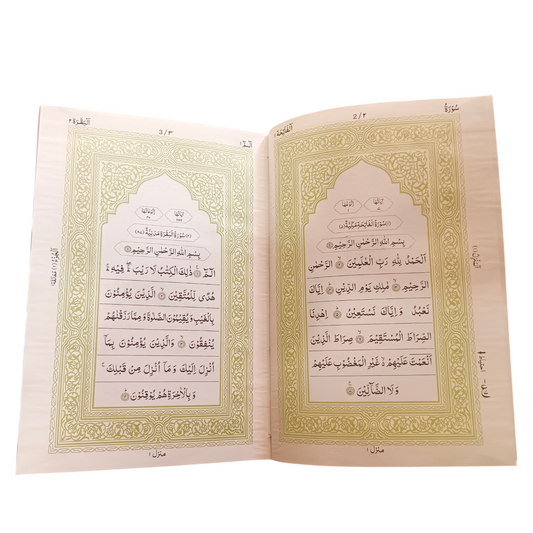 سُوْرَةُ
2/۲
اَلْفَاتِحَة ۱
اٰيَاتُهَا
رُكُوْعُهَا
بِسْمِ اللّٰهِ الرَّحْمٰنِ الرَّحِيْمِ
اَلْحَمْدُ لِلّٰهِ رَبِّ الْعٰلَمِيْنَ الرَّحْمٰنِ
الرَّحِيْمِ مٰلِكِ يَوْمِ الدِّيْنِ اِيَّاكَ
نَعْبُدُ وَ اِيَّاكَ نَسْتَعِيْنُ اِهْدِنَا
الصِّرَاطَ الْمُسْتَقِيْمَ صِرَاطَ الَّذِيْنَ
اَنْعَمْتَ عَلَيْهِمْ غَيْرِ الْمَغْضُوْبِ عَلَيْهِمْ
وَلَا الضَّآلِّيْنَ
منزل ۱
الٓمّٓ ۱
3/۳
اَلْبَقَرَة ۲
سُوْرَةُ الْبَقَرَةِ مَدَنِيَّةٌ
بِسْمِ اللّٰهِ الرَّحْمٰنِ الرَّحِيْمِ
الٓمّٓ ذٰلِكَ الْكِتٰبُ لَا رَيْبَ فِيْهِ
هُدًى لِّلْمُتَّقِيْنَ الَّذِيْنَ يُؤْمِنُوْنَ
بِالْغَيْبِ وَيُقِيْمُوْنَ الصَّلٰوةَ وَمِمَّا رَزَقْنٰهُمْ
يُنْفِقُوْنَ وَالَّذِيْنَ يُؤْمِنُوْنَ بِمَا
اُنْزِلَ اِلَيْكَ وَمَا اُنْزِلَ مِنْ قَبْلِكَ
وَبِالْاٰخِرَةِ هُمْ يُوْقِنُوْنَ
منزل ۱